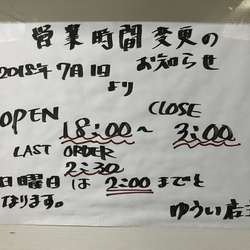 営業時間変更の
お知らせ
2018年7月1日
より
OPEN CLOSE
18:00～ 3:00
LAST ORDER
2:30
日曜日は 2:00までと
なります。
ゆうい店主